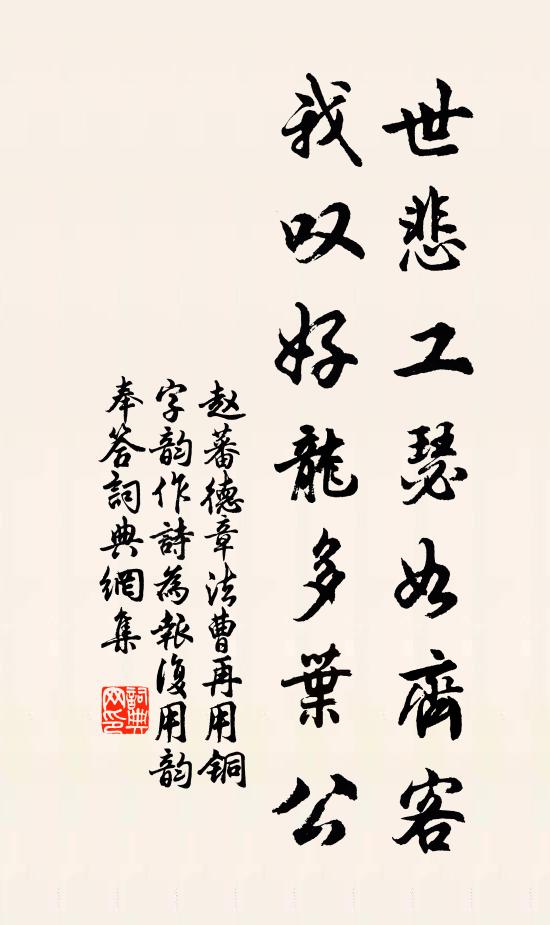 世悲工瑟如齊客
我叹好龍多葉公
赵蕃德章法曹再用銅
字韵作詩為報復用韵
奉答詞典網集
詞典
网印